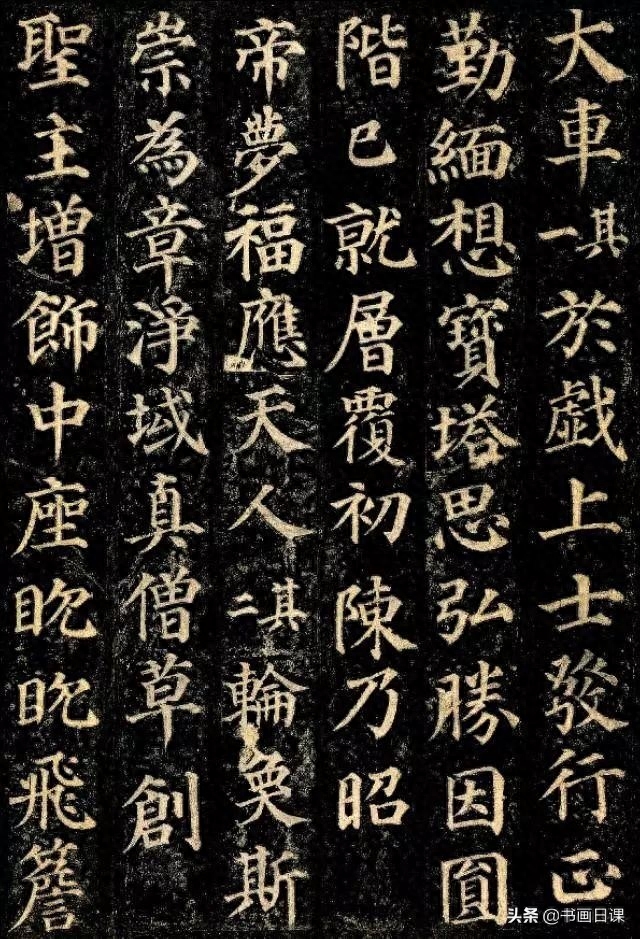 大車其一於戯上士發行正
勤緬想寶塔思弘勝因圓
階已就層覆初陳乃昭
帝夢福應天人其二輪奐斯
崇為章淨域真僧草創
聖主增飾中座眈眈飛簷
头条 @书画日课